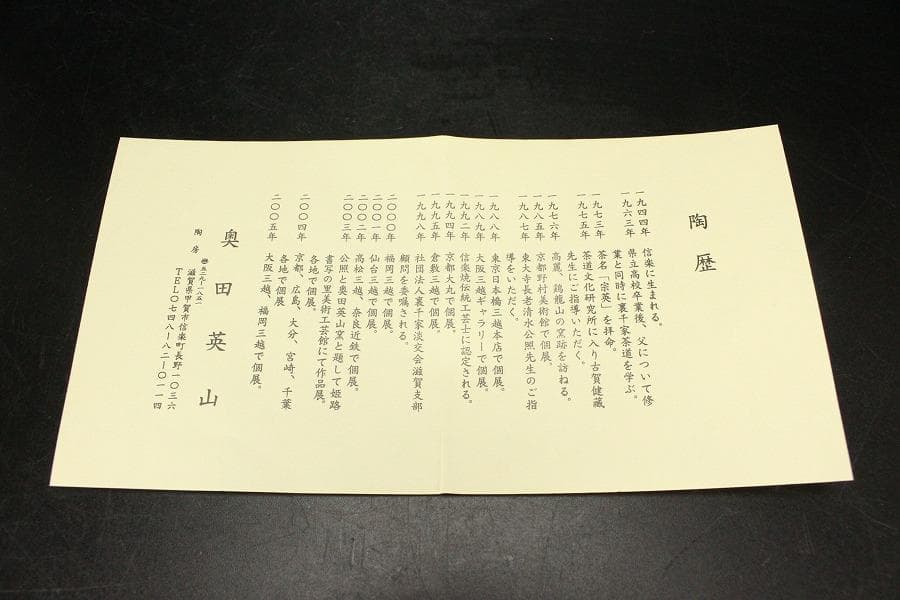 陶歴
一九四四年 信楽に生まれる。
一九六三年 県立高校卒業後、父について修
業と同時に裏千家茶道を学ぶ。
一九七三年 茶名「宗英」を拝命。
一九七五年 茶道文化研究所に入り古賀健藏
先生にご指導いただく。
一九七六年 高麗、鶏龍山の窯跡を訪ねる。
一九八五年 京都野村美術館で個展。
一九八七年 東大寺長老清水公照先生のご指
導をいただく。
一九八八年 東京日本橋三越本店で個展。
一九八九年 大阪三越ギャラリーで個展。
一九九二年 信楽焼伝統工芸士に認定される。
一九九四年 京都大丸で個展。
一九九五年 倉敷三越で個展。
一九九八年 社団法人裏千家淡交会滋賀支部
顧問を委嘱される。
二〇〇〇年 福岡三越で個展。
二〇〇一年 仙台三越で個展。
二〇〇二年 高松三越、奈良近鉄で個展。
二〇〇三年 公照と奥田英山窯と題して姫路
書写の里美術工芸館にて作品展。
各地で個展。
二〇〇四年 京都、広島、大分、宮崎、千葉
各地で個展。
二〇〇五年 大阪三越、福岡三越で個展。
奥田英山
陶房 〒五二九-一八五一
滋賀県甲賀市信楽町長野一〇三六
TEL〇七四八-八二-〇一一四